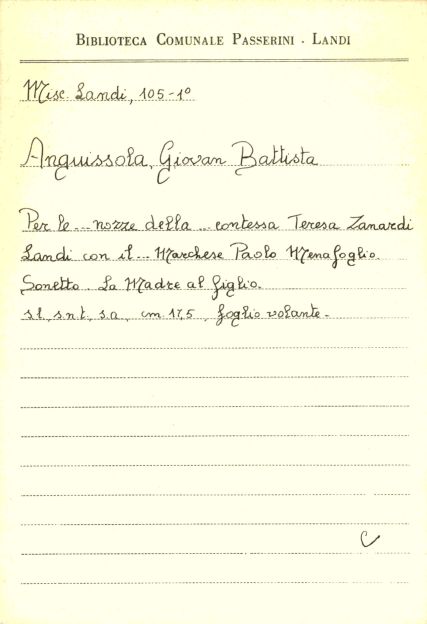 BIBLIOTECA COMUNALE PASSERINI - LANDI
Misc. Landi, 105-1°
Anguissola, Giovan Battista
Per le ... nozze della ... contessa Teresa Zanardi
Landi con il ... Marchese Paolo Menafoglio.
Sonetto. La Madre al figlio.
s.l., s.n.t., s.a., cm. 17,5, foglio volante.
C